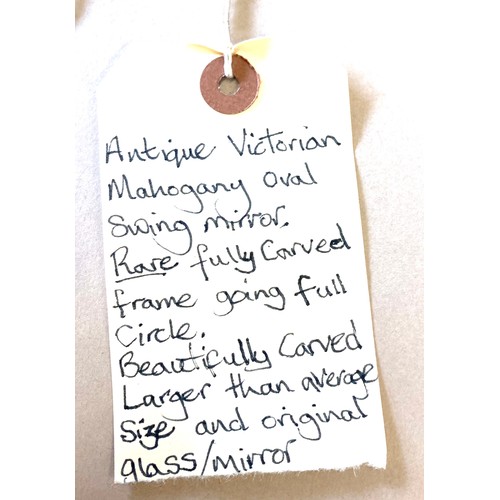 Antique Victorian
Mahogany Oval
Swing mirror.
Rare fully Carved
frame going full
Circle.
Beautifully Carved
Larger than average
Size and original
glass/mirror